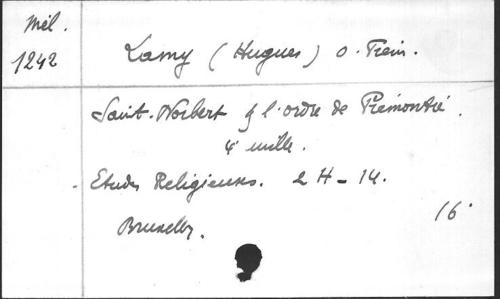 Mél.
1242
Lamy (Hugues) O. Prem.
Saint-Norbert & l'ordre de Prémontré.
4e mille.
- Etudes Religieuses. 2 H - 14.
16°
Bruxelles.